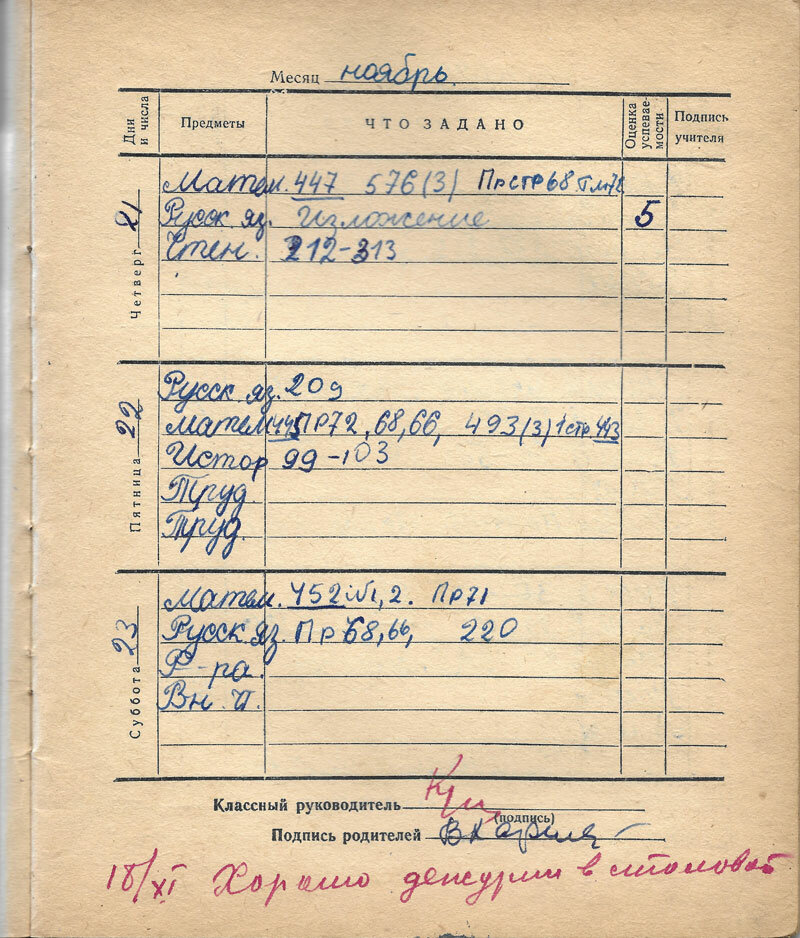 Месяц ноябрь
Дни и числа Предметы ЧТО ЗАДАНО Оценка успеваемости Подпись учителя
Четверг 21
Матем. 447 576(3) Пр стр 68
Русск яз. Изложение 5
Чтен. 212-313
Пятница 22
Русск яз. 209
Матем 445 Пр 72, 68, 66, 493(3) 1 стр 443
Истор 99-103
Труд.
Труд.
Суббота 23
Матем. 452 №1, 2. Пр 71
Русск яз. Пр 68, 66, 220
Р-ра.
Вн. ч.
Классный руководитель
(подпись)
Подпись родителей
18/XI Хорошо дежурил в столовой